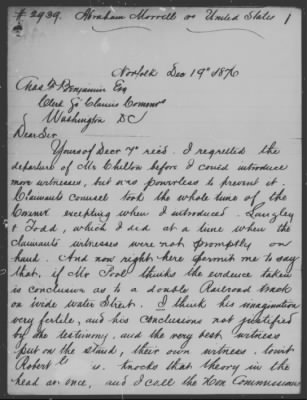 # 2939. Abraham Morrell vs United States 1
Norfolk Dec 19th 1876
Chas F Benjamin Esq
Clerk So Claims Comons
Washington DC
Dear Sir
Yours of Decr 7" recd. I regretted the
departure of Mr Chilton before I could introduce
more witnesses, but was powrless to prevent it.
Claimants counsel took the whole time of the
Commr excepting when I introduced Langley
& Todd, which I did at a time when the
claimants witnesses were not promptly on
hand. And now right here permit me to say
that, if Mr Pool thinks the evidence taken
is conclusive as to a double Railroad track
on wide water Street. I think his imagination
very fertile, and his conclusions not justified
by the testimony, and the very best witness
put on the stand, their own witness.
Robert knocks that theory in the
head at once, and I call the Hon Commissioners